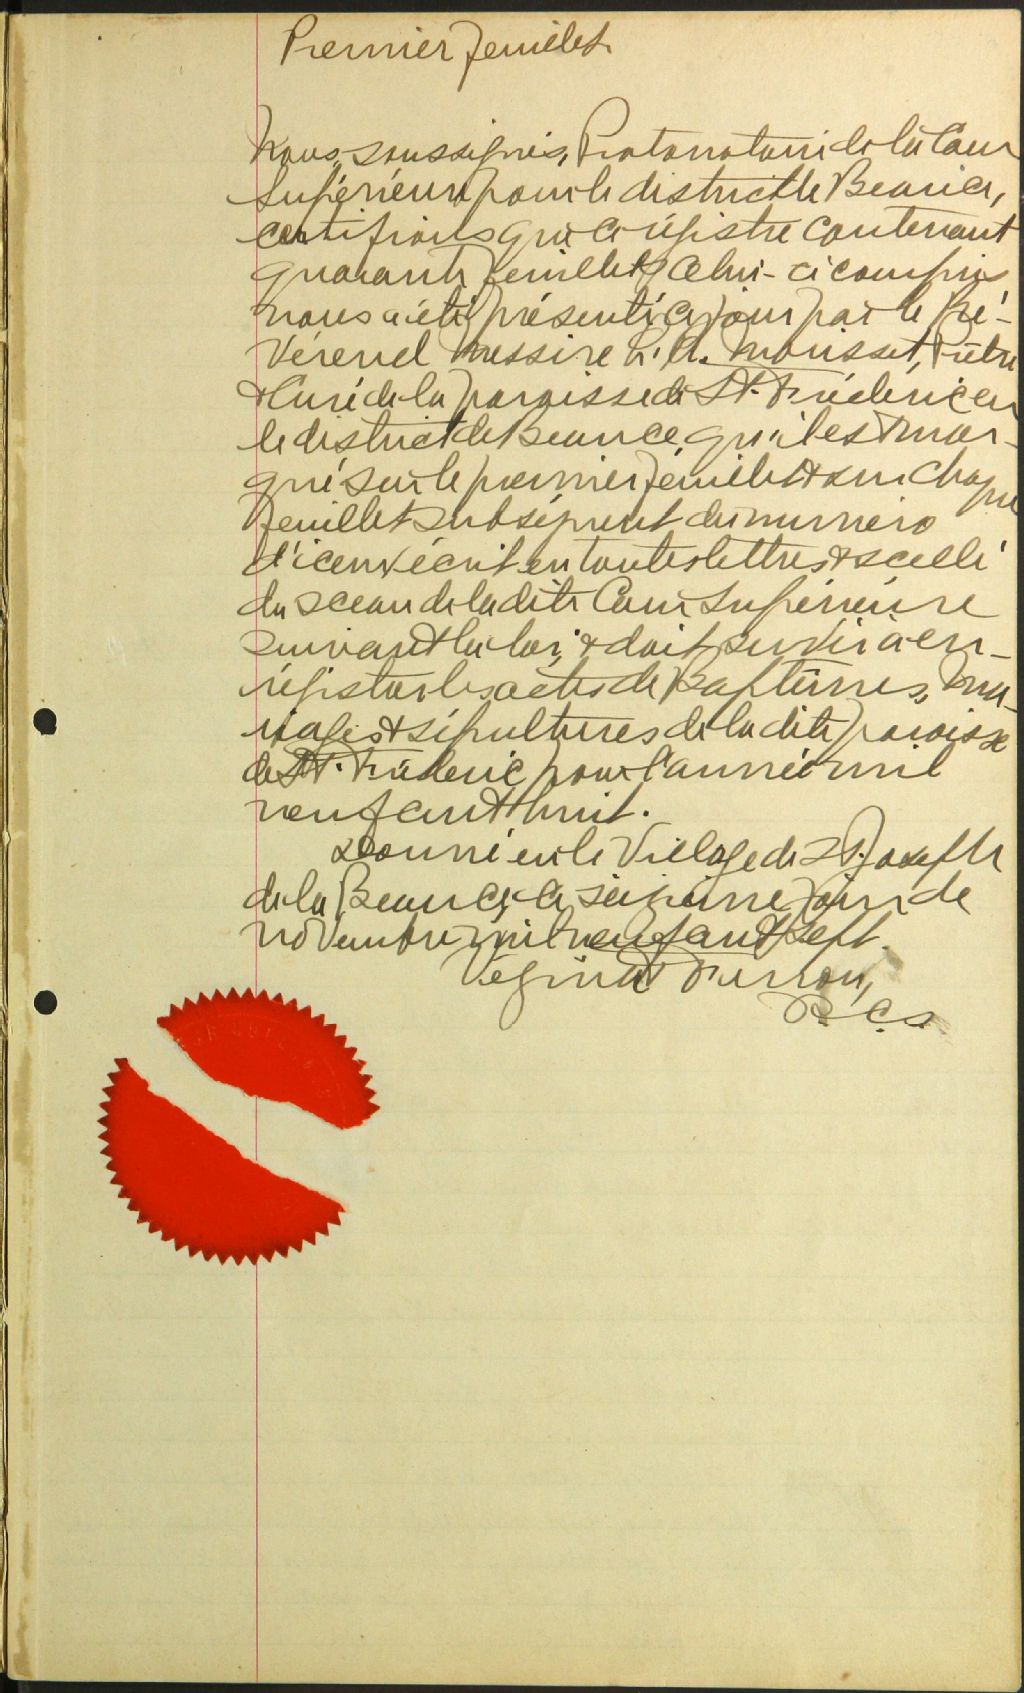 Premier feuillet
Nous, soussignés, Protonotaire de la Cour
Supérieure pour le district de Beauce,
certifions que ce régistre contenant
quarante feuillets celui-ci compris
nous a été présenté ce jour par le Ré-
vérend Messire Morisset, Ptre
& Curé de la paroisse de St. Frédéric en
le district de Beauce qu'il est mar-
qué sur le premier feuillet & sur chaque
feuillet subséquent du numéro
d'iceux écrit en toutes lettres & scellé
du sceau de la dite Cour Supérieure
suivant la loi, & doit servir à en-
régistrer les actes de Baptêmes, Ma-
riages & sépultures de la dite paroisse
de St. Frédéric pour l'année mil
neuf cent huit.
Donné en le Village de St. Joseph
de la Beauce, ce jour de
novembre mil neuf cent sept.
P.C.S.